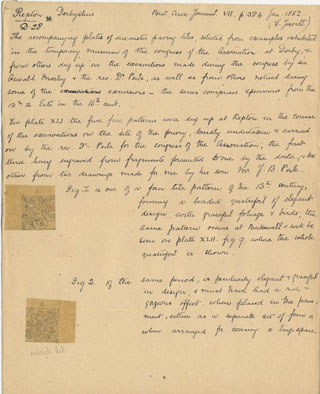 Repton Derbyshire Brit. Arch. Journal. VII. p 384 Jan. 1852
D 28 (L. Jewitt)
The accompanying plates of encaustic paving tiles selected from examples exhibited
in the temporary museum of the congress of the Association at Derby, &
from others dug up in the excavations made during the congress by Sir
Oswald Mosley & the rev. Dr. Peile, as well as from others noticed during
some of the excursions – the series comprises specimens from the
13th to late in the 16th cent.
On plate XLI the five patterns were dug up at Repton in the course
of the excavations on the site of the priory, kindly undertaken & carried
on by the rev. Dr. Peile for the congress of the Association; the first
three being engraved from fragments presented to me, by the doctor, & the
other from two drawings made for me by his son Mr J. B. Peile.
Fig I. is one of a four tile pattern of the 13th century,
forming a beaded quatrefoil of elegant
design, with graceful foliage & birds; the
same pattern occurs at Bakewell & will be
seen on plate XLII. fig 9 where the whole
quatrefoil is shown.
Fig 2. Of the same period, is peculiarly elegant & graceful
in design, & must have had a rich &
gorgeous effect, when placed in the pave-
ment, either as a separate set of four or
when arranged for covering a large space